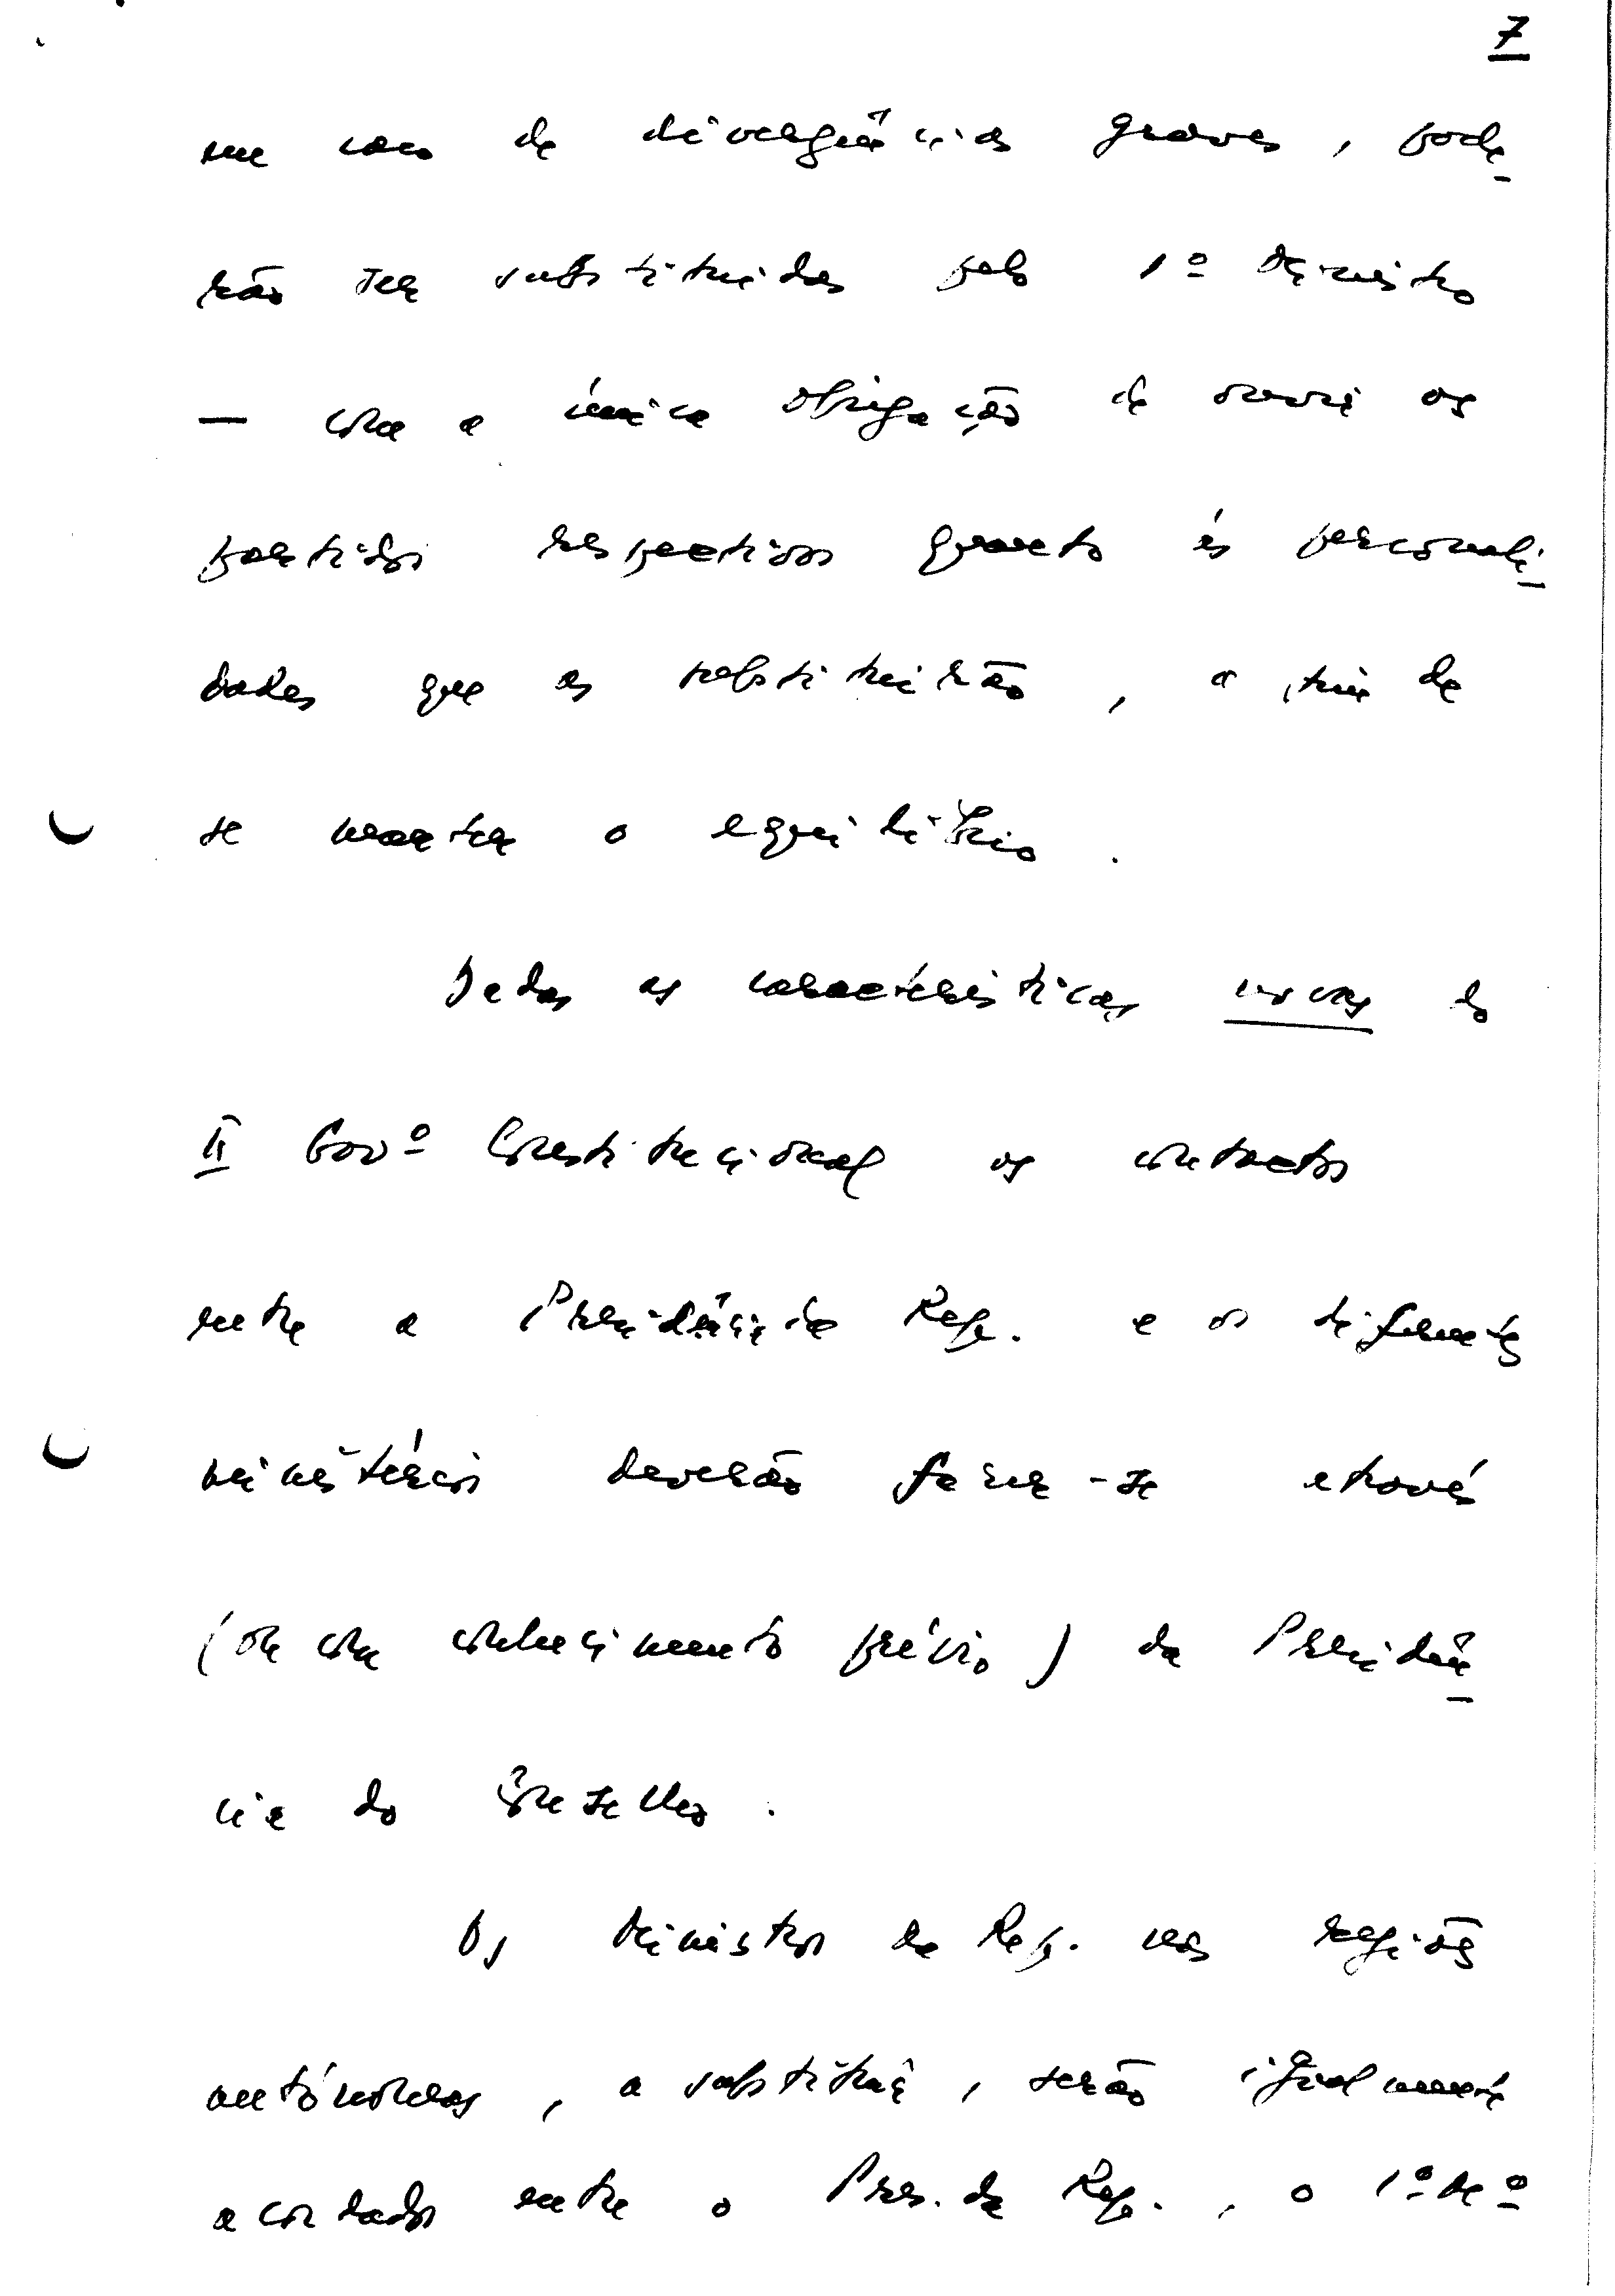 7
em caso de divergências graves, pode-
rão ser substituidas pelo 1º Ministro
— com a única obrigação de ouvir os
partidos respectivos quanto às personali-
dades que as substituirão, a fim de
se manter o equilíbrio.
Dadas as características novas do
II Govº Constitucional os contactos
entre a Presidência da Rep. e os diferentes
ministérios deverão fazer-se através
(ou com conhecimento prévio) da Presidên-
cia do Conselho.
Os Ministros da Rep. nas regiões
autónomas, a substituir, serão igualmente
acordados entre o Pres. da Rep., o 1º Mº